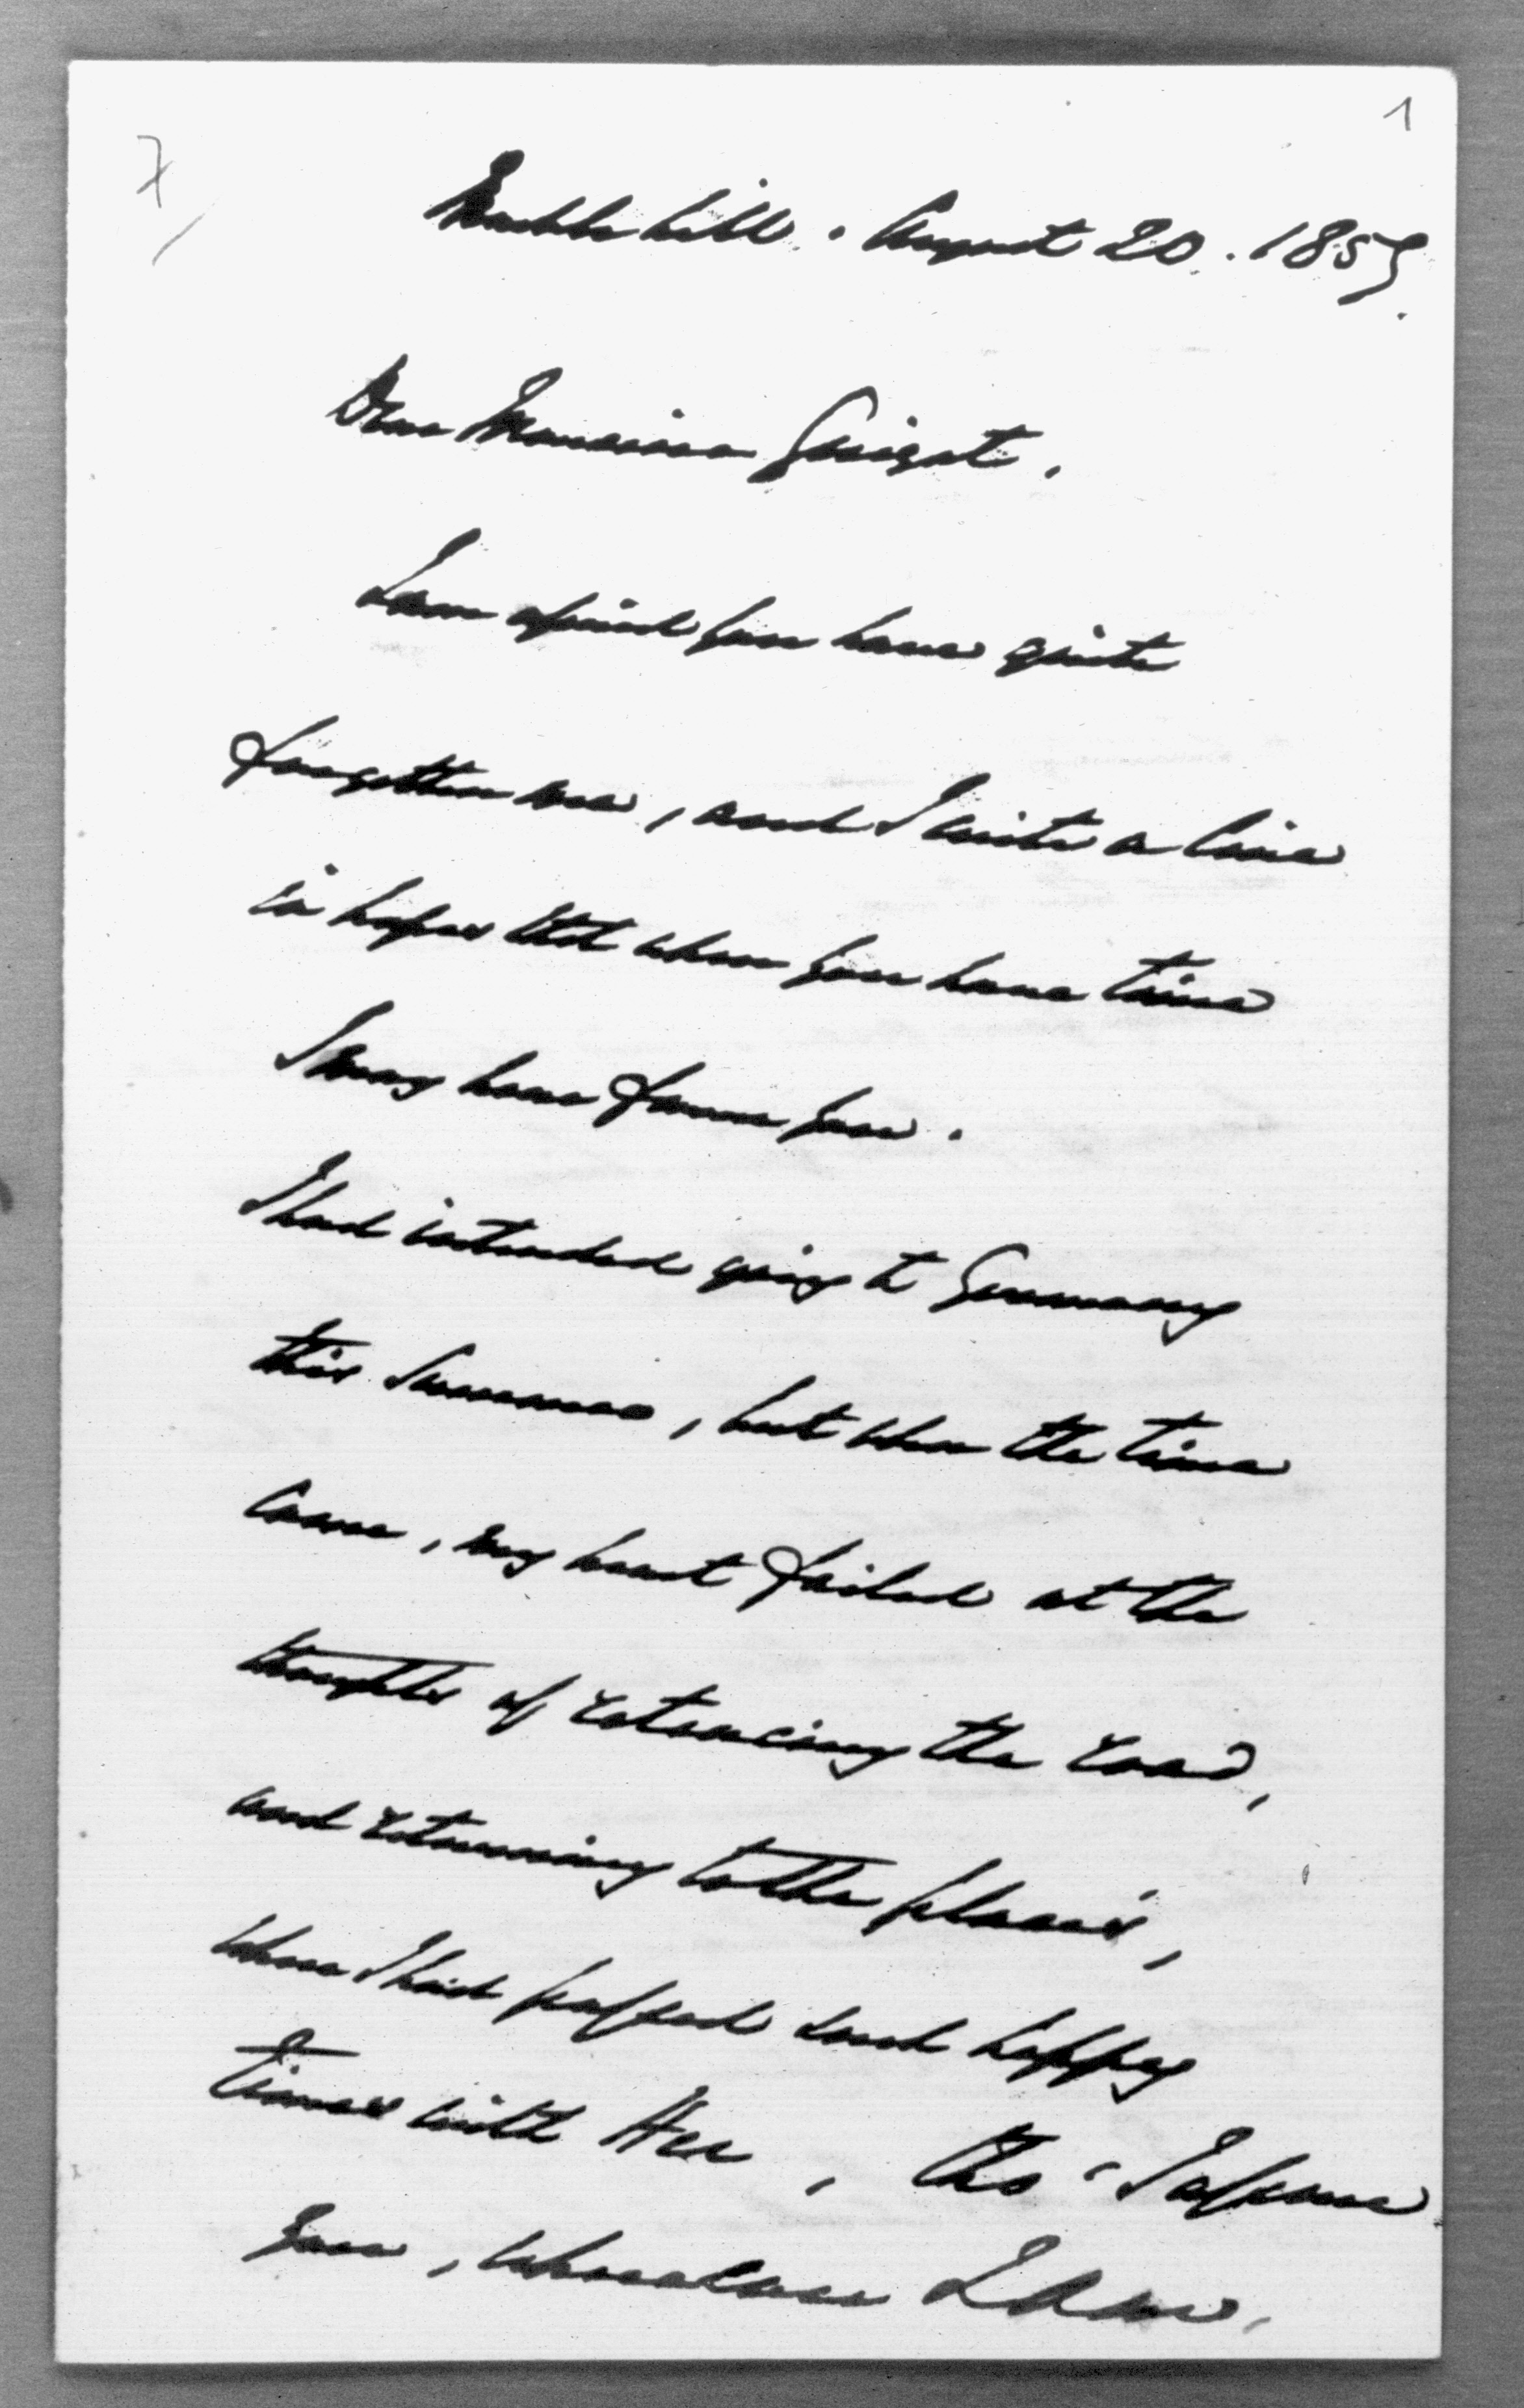 7
1
Marble hill. August 20. 1857.
Dear Monsieur Guizot,
I am afraid you have quite
forgotten me, and I write a line
in hopes that when you have time
I may hear from you.
I had intended going to Germany
this Summer, but when the time
came, my heart failed at the
thoughts of retracing the road,
and returning to the places,
where I had passed such happy
times with Her, tho' I assure
you, wherever I am,